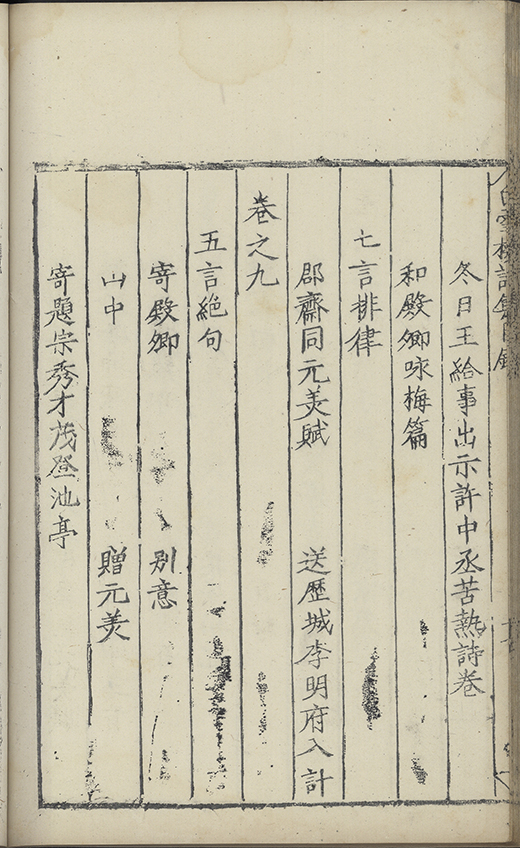 白雪樓詩集目錄
冬日王給事出示許中丞苦熱詩卷
和殿卿咏梅篇
七言排律
郡齋同元美賦 送歷城李明府入計
卷之九
五言絶句
寄殿卿 別意
山中 贈元美
寄題宗秀才茂登池亭